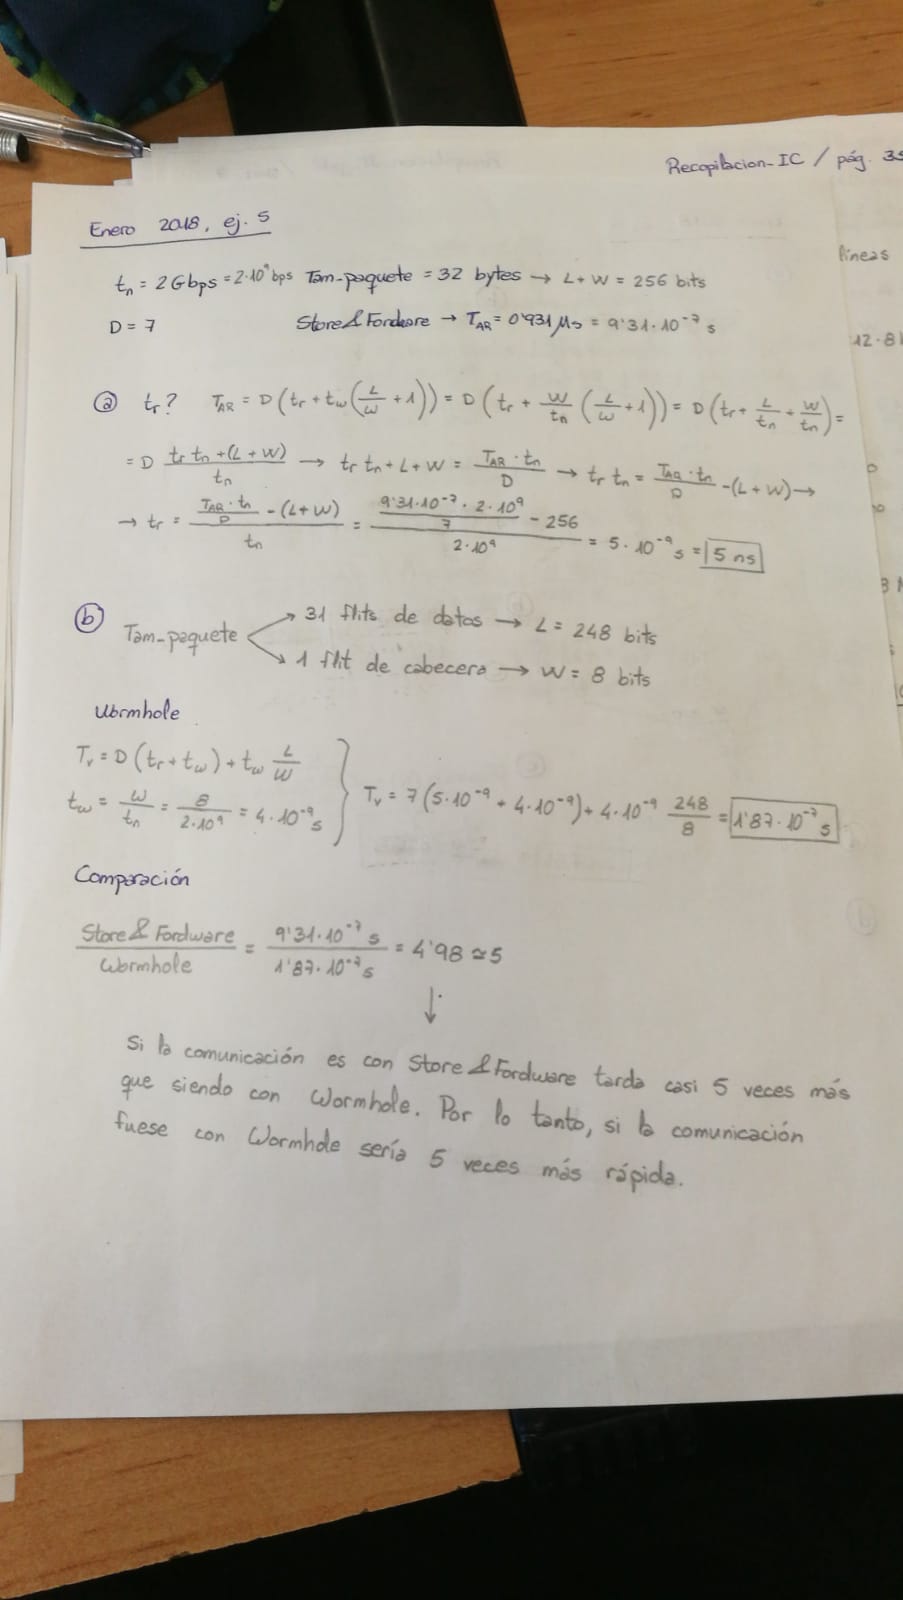 Recopilacion-IC / pág. 35
Enero 2018, ej. 5
líneas
tn = 2Gbps = 2·10⁹ bps Tam-paquete = 32 bytes → L+W = 256 bits
D = 7 Store&Fordware → TAR = 0'931 μs = 9'31·10⁻⁷ s
12·8
ⓐ tr? TAR = D(tr + tw(L/w + 1)) = D(tr + W/tn (L/w + 1)) = D(tr + L/tn + W/tn) =
= D (tr tn + (L + W))/tn → tr tn + L + W = TAR·tn/D → tr tn = TAR·tn/D - (L + W) →
→ tr = (TAR·tn/D - (L+W))/tn = (9'31·10⁻⁷ · 2·10⁹/7 - 256)/(2·10⁹) = 5·10⁻⁹ s = 5 ns
ⓑ Tam-paquete
31 flits de datos → L = 248 bits
1 flit de cabecera → W = 8 bits
Wormhole
Tv = D(tr + tw) + tw L/W
tw = w/tn = 8/(2·10⁹) = 4·10⁻⁹ s
} Tv = 7(5·10⁻⁹ + 4·10⁻⁹) + 4·10⁻⁹ 248/8 = 1'87·10⁻⁷ s
Comparación
Store & Fordware/Wormhole = 9'31·10⁻⁷ s/1'87·10⁻⁷ s = 4'98 ≃ 5
↓
Si la comunicación es con Store &Fordware tarda casi 5 veces más
que siendo con Wormhole. Por lo tanto, si la comunicación
fuese con Wormhole sería 5 veces más rápida.